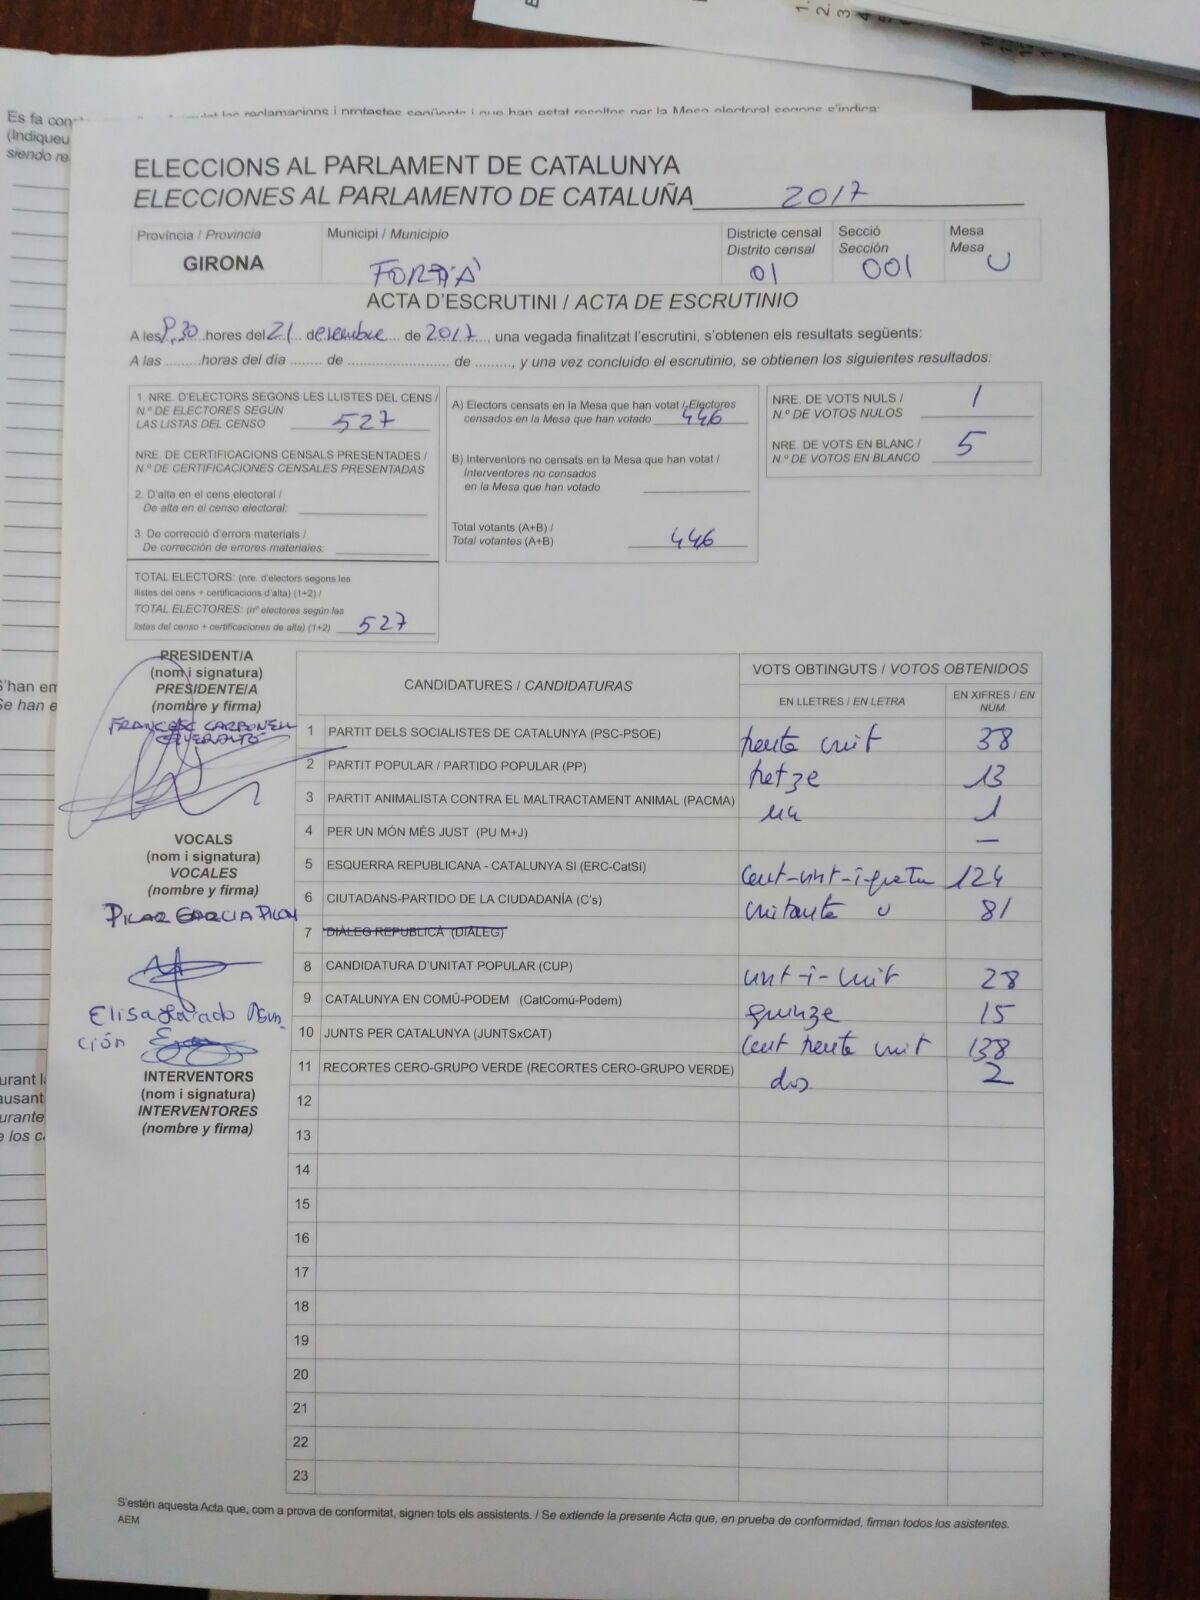 Es fa
(Indiqueu
siendo re
reclamacions i protestes següents i que han estat resoltes per la Mesa electoral segons s'indica:
ELECCIONS AL PARLAMENT DE CATALUNYA
ELECCIONES AL PARLAMENTO DE CATALUÑA 2017
Província / Provincia
GIRONA
Municipi / Municipio
FORTIÀ
Districte censal
Distrito censal
01
Secció
Sección
001
Mesa
Mesa
U
ACTA D'ESCRUTINI / ACTA DE ESCRUTINIO
A les 9,30 hores del 21 desembre de 2017, una vegada finalitzat l'escrutini, s'obtenen els resultats següents:
A las .........horas del día ........ de ......................... de ........., y una vez concluido el escrutinio, se obtienen los siguientes resultados:
1. NRE. D'ELECTORS SEGONS LES LLISTES DEL CENS /
N.º DE ELECTORES SEGÚN
LAS LISTAS DEL CENSO 527
NRE. DE CERTIFICACIONS CENSALS PRESENTADES /
N.º DE CERTIFICACIONES CENSALES PRESENTADAS
2. D'alta en el cens electoral /
De alta en el censo electoral:
3. De correcció d'errors materials /
De corrección de errores materiales:
TOTAL ELECTORS: (nre. d'electors segons les
llistes del cens + certificacions d'alta) (1+2) /
TOTAL ELECTORES: (nº electores según las
listas del censo + certificaciones de alta) (1+2) 527
A) Electors censats en la Mesa que han votat / Electores
censados en la Mesa que han votado 446
B) Interventors no censats en la Mesa que han votat /
Interventores no censados
en la Mesa que han votado
Total votants (A+B) /
Total votantes (A+B) 446
NRE. DE VOTS NULS /
N.º DE VOTOS NULOS 1
NRE. DE VOTS EN BLANC /
N.º DE VOTOS EN BLANCO 5
PRESIDENT/A
(nom i signatura)
PRESIDENTE/A
(nombre y firma)
FRANCESC CARBONELL
VOCALS
(nom i signatura)
VOCALES
(nombre y firma)
PILAR GARCIA
INTERVENTORS
(nom i signatura)
INTERVENTORES
(nombre y firma)
CANDIDATURES / CANDIDATURAS
VOTS OBTINGUTS / VOTOS OBTENIDOS
EN LLETRES / EN LETRA
EN XIFRES / EN NÚM.
1 PARTIT DELS SOCIALISTES DE CATALUNYA (PSC-PSOE) trenta vuit 38
2 PARTIT POPULAR / PARTIDO POPULAR (PP) tretze 13
3 PARTIT ANIMALISTA CONTRA EL MALTRACTAMENT ANIMAL (PACMA) un 1
4 PER UN MÓN MÉS JUST (PU M+J) —
5 ESQUERRA REPUBLICANA - CATALUNYA SI (ERC-CatSí) cent-vint-i-quatre 124
6 CIUTADANS-PARTIDO DE LA CIUDADANÍA (C's) vuitanta u 81
7 DIÀLEG REPUBLICÀ (DIÀLEG)
8 CANDIDATURA D'UNITAT POPULAR (CUP) vint-i-vuit 28
9 CATALUNYA EN COMÚ-PODEM (CatComú-Podem) quinze 15
10 JUNTS PER CATALUNYA (JUNTSxCAT) cent trenta vuit 138
11 RECORTES CERO-GRUPO VERDE (RECORTES CERO-GRUPO VERDE) dos 2
12
13
14
15
16
17
18
19
20
21
22
23
S'estén aquesta Acta que, com a prova de conformitat, signen tots els assistents. / Se extiende la presente Acta que, en prueba de conformidad, firman todos los asistentes.
AEM